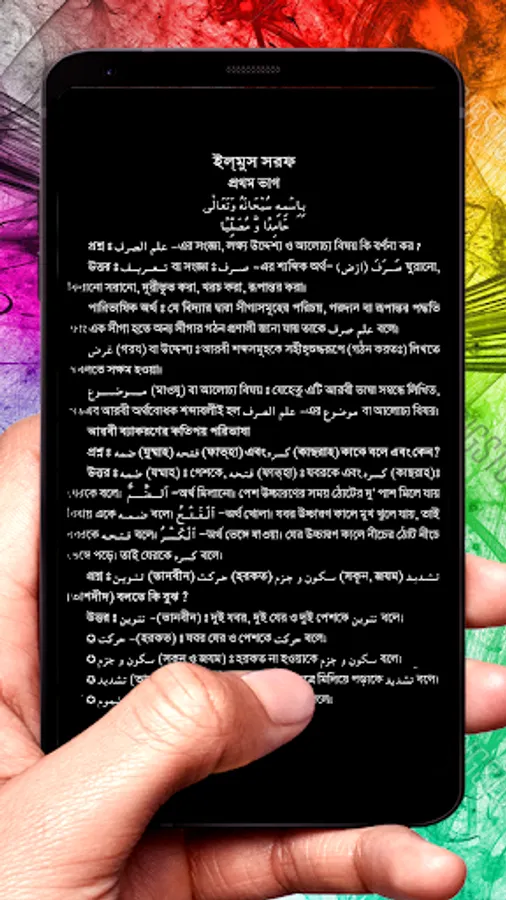 ইল্‌মুস সরফ
প্রথম ভাগ
بِاسْمِهٖ سُبْحَانَهٗ وَتَعَالٰى
حَامِدًا وَّ مُصَلِّيًا
প্রশ্ন ঃ علم الصرف –এর সংজ্ঞা, লক্ষ্য উদ্দেশ্য ও আলোচ্য বিষয় কি বর্ণনা কর ?
উত্তর ঃ تعريف বা সংজ্ঞা ঃ صرف –এর শাব্দিক অর্থ– صَرْفٌ (ض) ঘুরানো,
সরানো, দূরীভূত করা, খরচ করা, রূপান্তর করা।
পারিভাষিক অর্থ ঃ যে বিদ্যার দ্বারা সীগাসমূহের পরিচয়, গরদান বা রূপান্তর পদ্ধতি
এক সীগা হতে অন্য সীগার গঠন প্রণালী জানা যায় তাকে علم صرف বলে।
غرض (গরয) বা উদ্দেশ্য ঃ আরবী শব্দসমূহকে সহীহশুদ্ধরূপে (গঠন করতঃ) লিখতে
সক্ষম হওয়া।
موضوع (মাওযু) বা আলোচ্য বিষয় ঃ যেহেতু এটি আরবী ভাষা সম্বন্ধে লিখিত,
আরবী অর্থবোধক শব্দাবলীই হল علم الصرف –এর موضوع বা আলোচ্য বিষয়।
আরবী ব্যাকরণের কতিপয় পরিভাষা
প্রশ্ন ঃ ضمه (যুম্মাহ) فتحه (ফাত্হা) এবং كسره (কাছরাহ) কাকে বলে এবং কেন?
উত্তর ঃ ضمه (যম্মাহ) ঃ পেশকে, فتحه (ফাত্হা) ঃ যবরকে এবং كسره (কাছরাহ) ঃ
বলে। اَلضَّمُّ –অর্থ মিলানো। পেশ উচ্চারণের সময় ঠোটের দু' পাশ মিলে যায়
একে ضمه বলে। اَلْفَتْحُ –অর্থ খোলা। যবর উচ্চারণ কালে মুখ খুলে যায়, তাই
فتحه বলে। اَلْكَسْرُ –অর্থ ভেঙ্গে যাওয়া। যের উচ্চারণ কালে নীচের ঠোট নীচে
পড়ে। তাই যেরকে كسره বলে।
প্রশ্ন ঃ تنوين (তানবীন) حركت (হরকত) سكون و جزم (সকূন, জযম) تشديد
বলতে কি বুঝ ?
উত্তর ঃ تنوين –(তানবীন) ঃ দুই যবর, দুই যের ও দুই পেশকে تنوين বলে।
حركت –(হরকত) ঃ যবর যের ও পেশকে حركت বলে।
سكون و جزم (সকূন ও জযম) ঃ হরকত না হওয়াকে سكون و جزم বলে।
تشديد মিলিয়ে পড়াকে تشديد বলে।